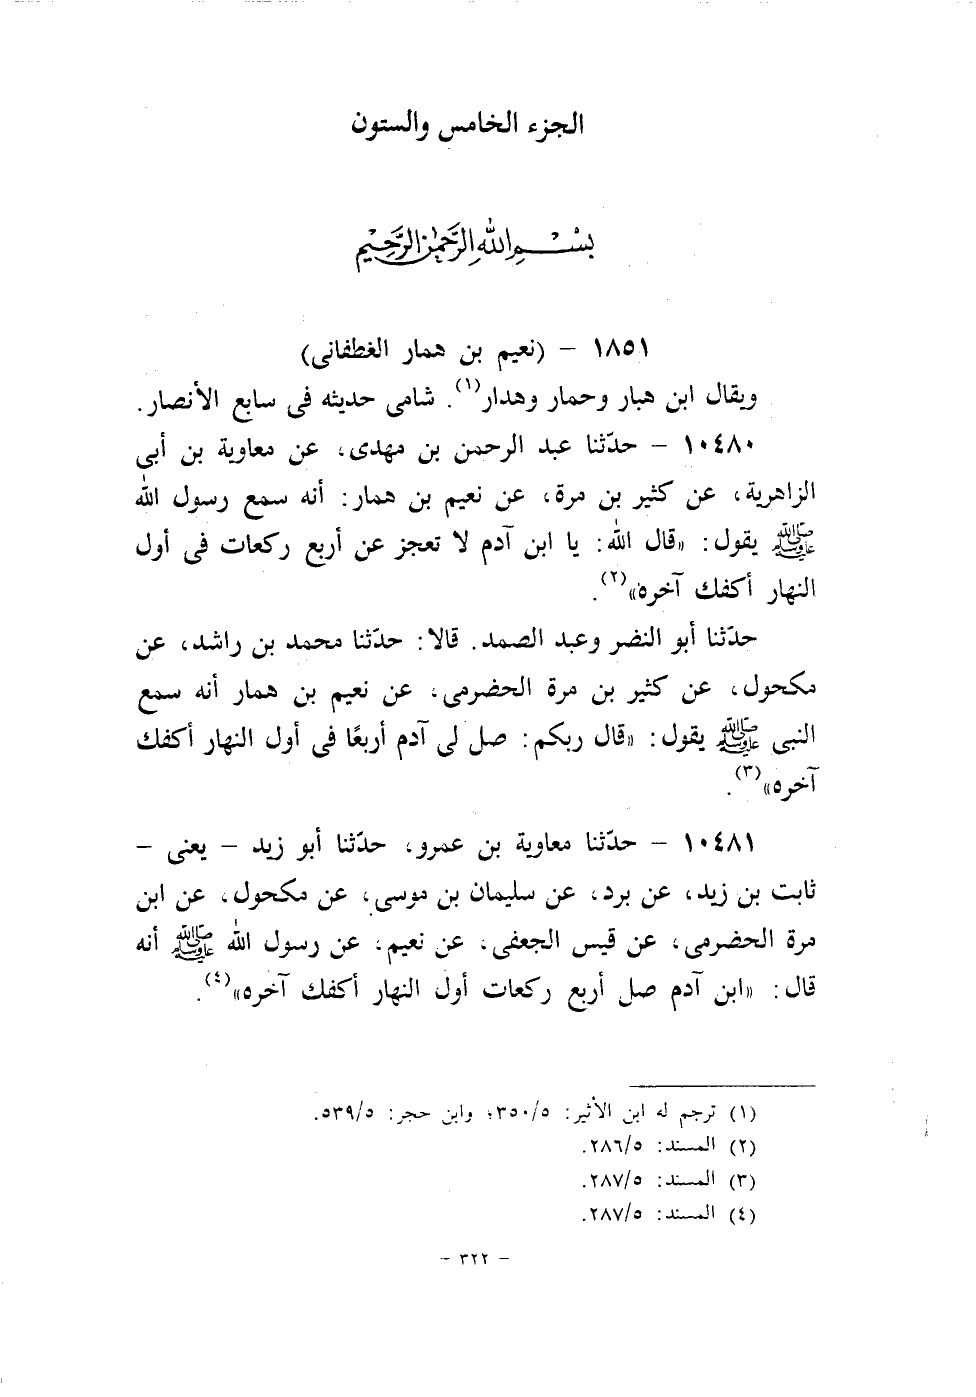 الجزء الخامس والستون
بسم الله الرحمن الرحيم
١٨٥١ – (نعيم بن همار الغطفانى)
ويقال ابن هبار وحمار وهدار(١). شامى حديثه فى سابع الأنصار.
١٠٤٨٠ – حدّثنا عبد الرحمن بن مهدى، عن معاوية بن أبى
الزاهرية، عن كثير بن مرة، عن نعيم بن همار: أنه سمع رسول الله
ﷺ يقول: «قال الله: يا ابن آدم لا تعجز عن أربع ركعات فى أول
النهار أكفك آخره»(٢).
حدّثنا أبو النضر وعبد الصمد. قالا: حدّثنا محمد بن راشد، عن
مكحول، عن كثير بن مرة الحضرمى، عن نعيم بن همار أنه سمع
النبى ﷺ يقول: «قال ربكم: صل لى آدم أربعًا فى أول النهار أكفك
آخره»(٣).
١٠٤٨١ – حدّثنا معاوية بن عمرو، حدّثنا أبو زيد – يعنى –
ثابت بن زيد، عن برد، عن سليمان بن موسى، عن مكحول، عن ابن
مرة الحضرمى، عن قيس الجعفى، عن نعيم، عن رسول الله ﷺ أنه
قال: «ابن آدم صل أربع ركعات أول النهار أكفك آخره»(٤).
(١) ترجم له ابن الأثير: ٣٥٠/٥؛ وابن حجر: ٥٣٩/٥.
(٢) المسند: ٢٨٦/٥.
(٣) المسند: ٢٨٧/٥.
(٤) المسند: ٢٨٧/٥.
– ٣٢٢ –